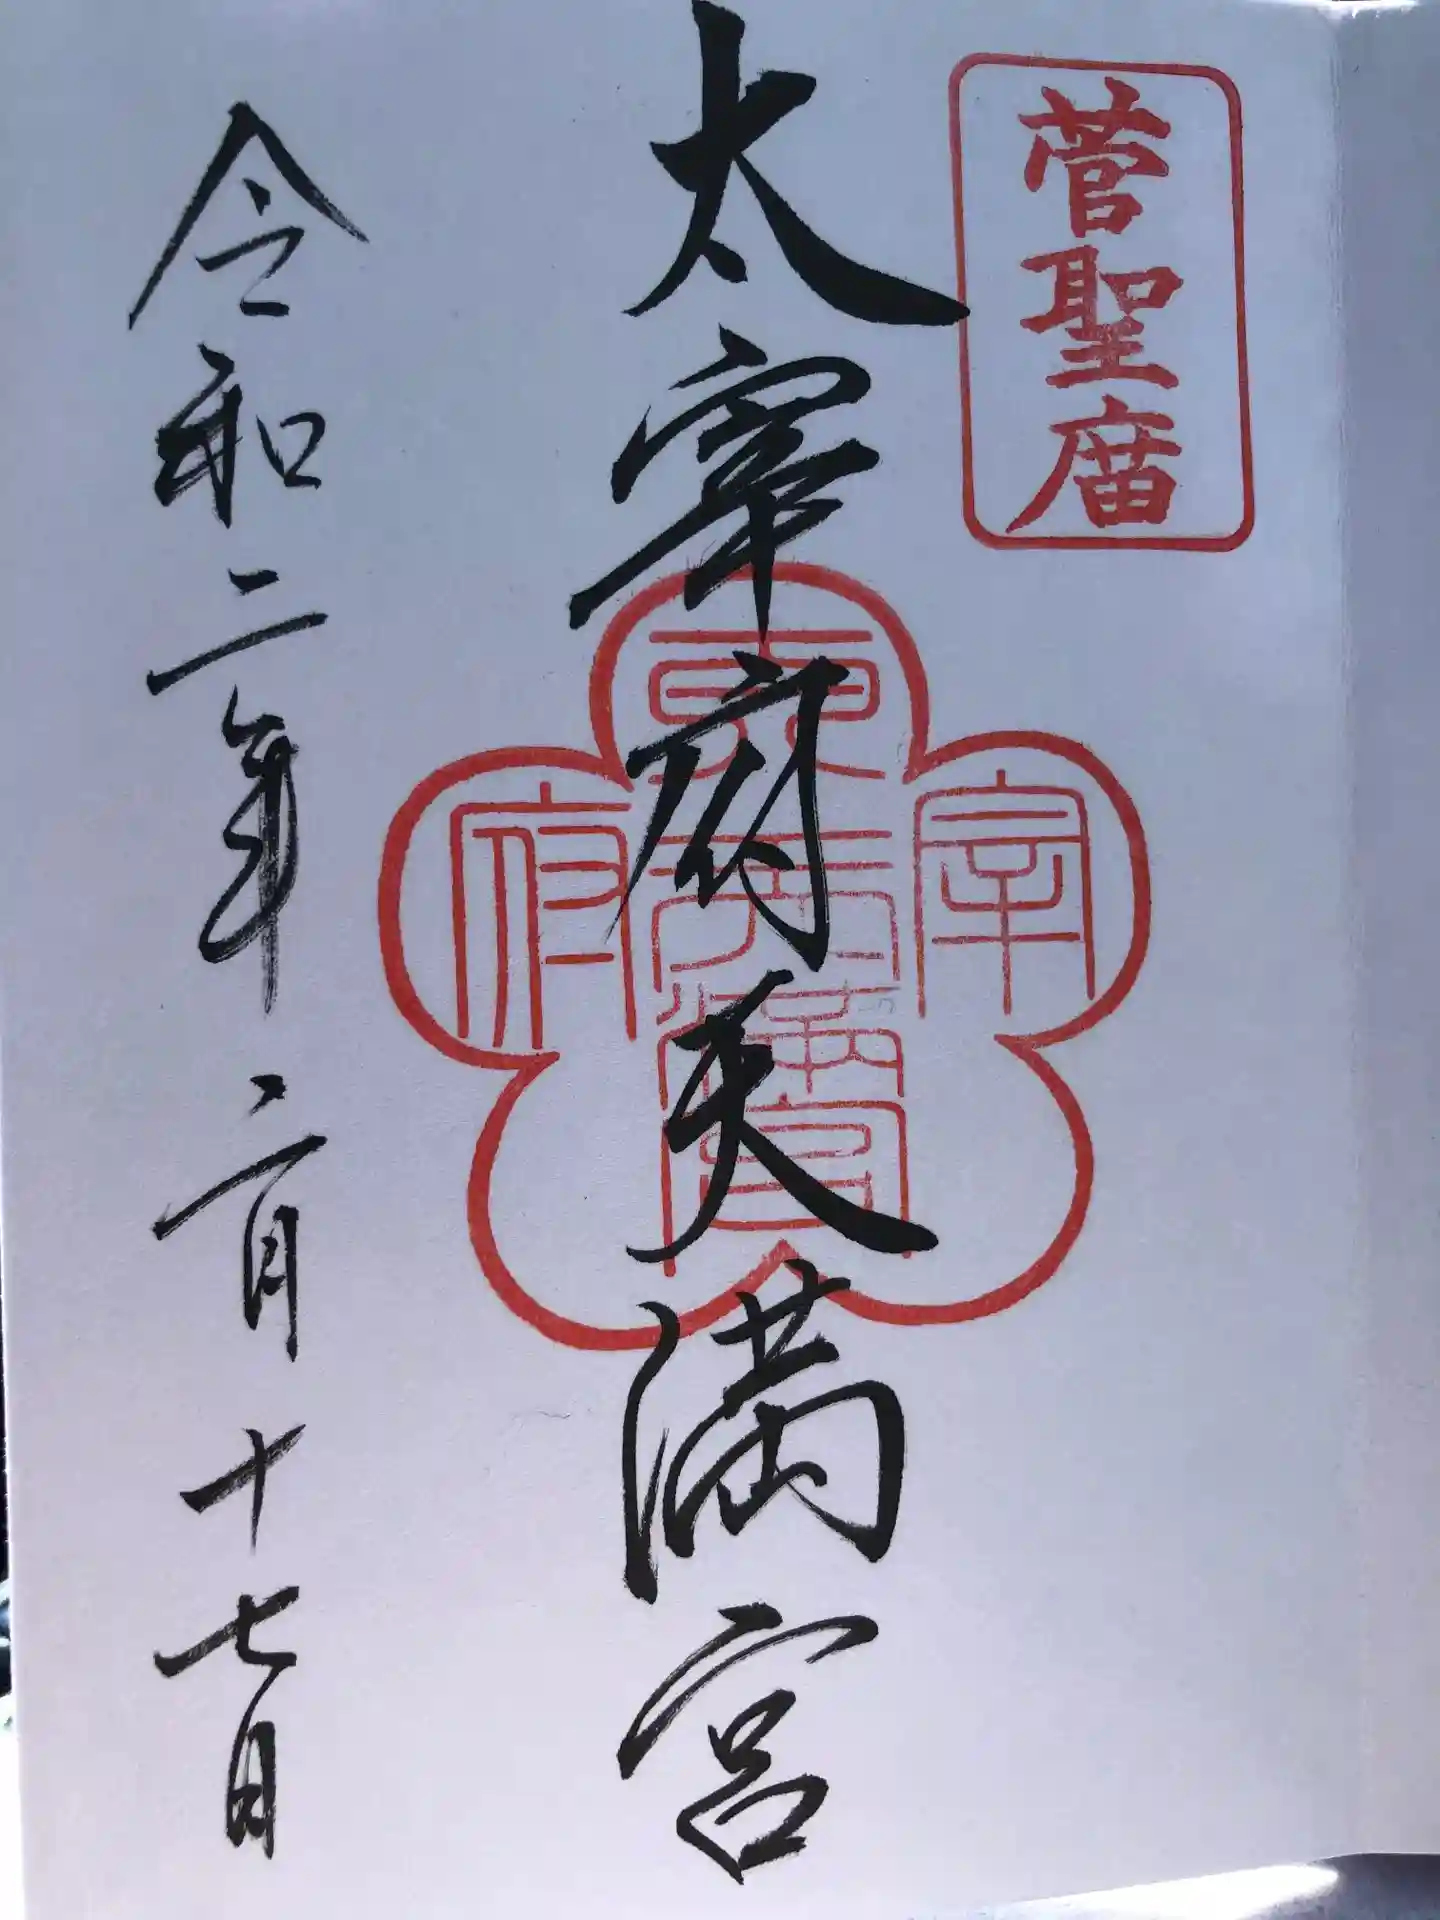 菅聖庿
太宰府天満宮
宰
府
天満宮
令和二年二月十七日